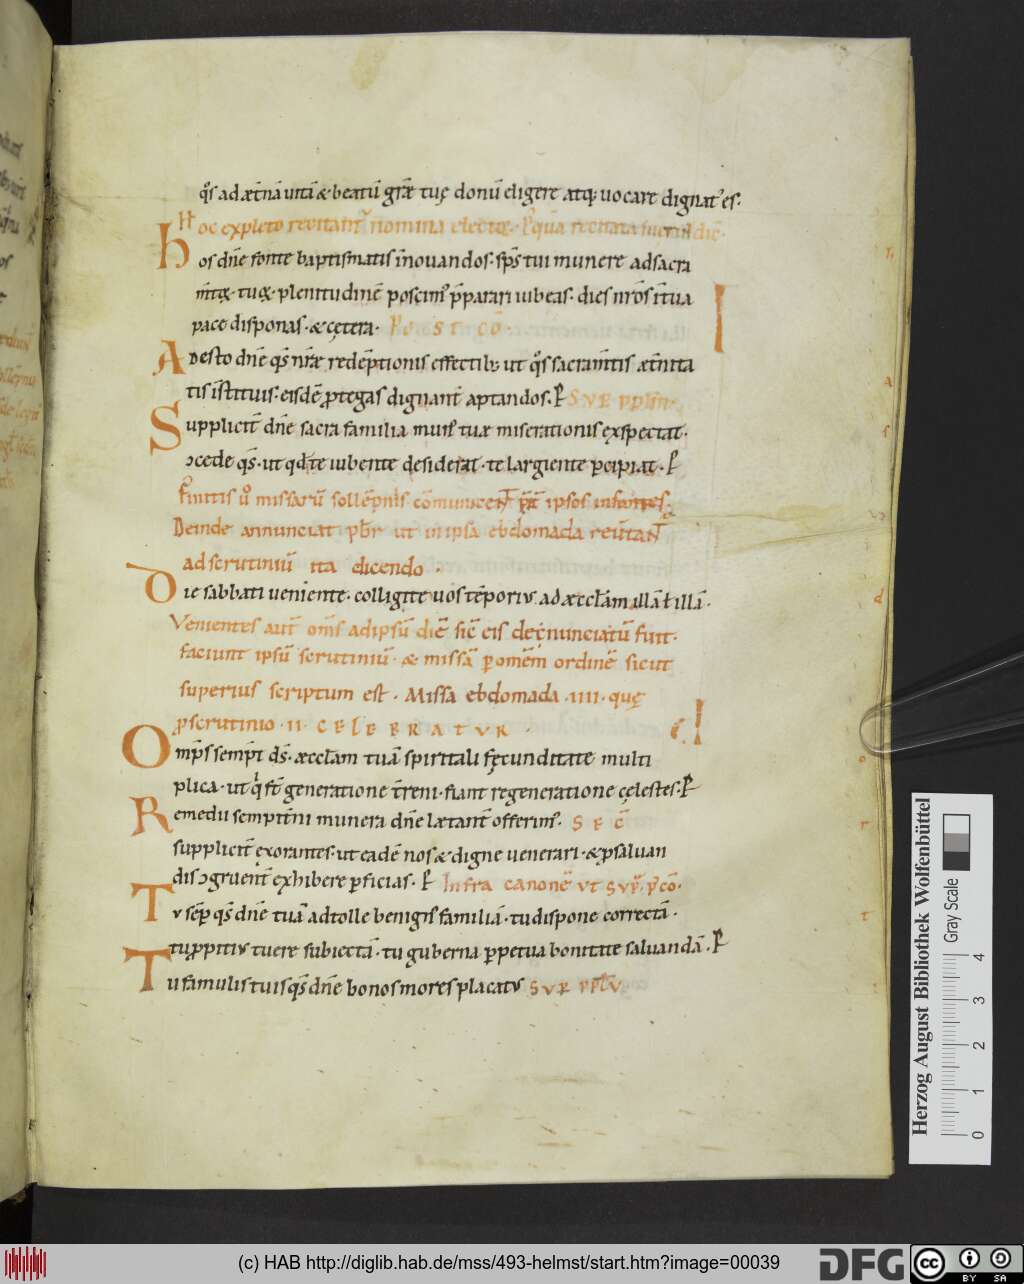 q̊s ad æt̄nā uitā & beatū gr̄æ tuę donū eligere atq; uocare dignat᾽ es.
Hoc expleto recitant᾽ nomina electoꝝ. Pꝰquā recitata fuerint dic̄.
hos dn̄e fonte baptismatis īnouandos. sp̄s tui munere ad sacra
m̄toꝝ tuoꝝ plenitudinē poscim᾽ p̄parari iubeas. dies nr̄os ītua
pace disponas. & cętera. Post cō.
Adesto dn̄e qs̄ nr̄æ redēptionis effectib; ut q̊s sacram̄tis æt̄nita
tis īstituis. eisdē ꝓtegas dignant̄ aptandos. P̄ Sup pplm̄.
Supplicit̄ dn̄e sacra familia mun᾽ tuæ miserationis exspectat.
ↄcede qs̄. ut qd te iubente desiderat. te largiente p̄cipiat. P̄
Finitis ů missarū sollēpniis cōmunicent p̄t ipsos infantes.
Deinde annunciat pb̄r ut in ipsa ebdomada reu̅tant᾽
ad scrutiniū ita dicendo.
Die sabbati ueniente. colligite uos tēporius ad æccl̄am illā ł illā.
Venientes aut̄ om̄s ad ipsū diē sic̄ eis denunciatū fuit.
faciunt ipsū scrutiniū. & missā ꝑ omēm ordinē sicut
superius scriptum est. Missa ebdomada .IIII. quę
ꝓ scrutinio .II. CELEBRATUR.
Omp̄s semp̄t ds̄. æccl̄am tuā spiritali fęcunditate multi
plica. ut qi st̄ generatione t̄reni. fiant regeneratione cęlestes. P̄
Remedii sempit̄ni munera dn̄e lætant̄ offerim᾽. SEC̄
supplicit̄ exorantes. ut eadē nos & digne uenerari. & ꝓ saluan
dis ↄgruent̄ exhibere ꝑficias. P̄ Infra canonē ut sup̄. p᾽ cō.
Tu semp̄ qs̄ dn̄e tuā adtolle benignis familiā. tu dispone correctā.
Tu ꝓpitius tuere subiectā. tu guberna ꝑpetua bonitate saluandā. P̄
Tu famulis tuis qs̄ dn̄e bonos mores placatus SUP PPL̄U
Herzog August Bibliothek Wolfenbüttel
Gray Scale
0 1 2 3 4
(c) HAB http://diglib.hab.de/mss/493-helmst/start.htm?image=00039
DFG
cc BY SA